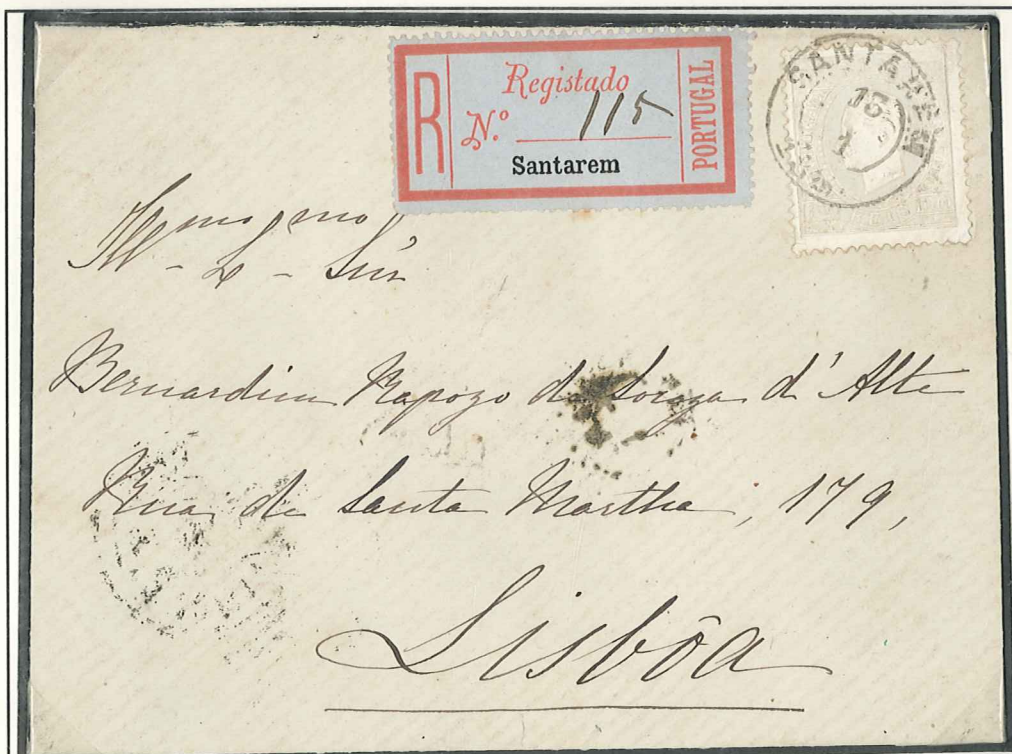 R
Registado
N.º 115
Santarem
PORTUGAL
SANTAREM
13
1
Bernardim Rapozo de Souza d'Alte
Rua de Santa Martha, 179,
Lisbôa